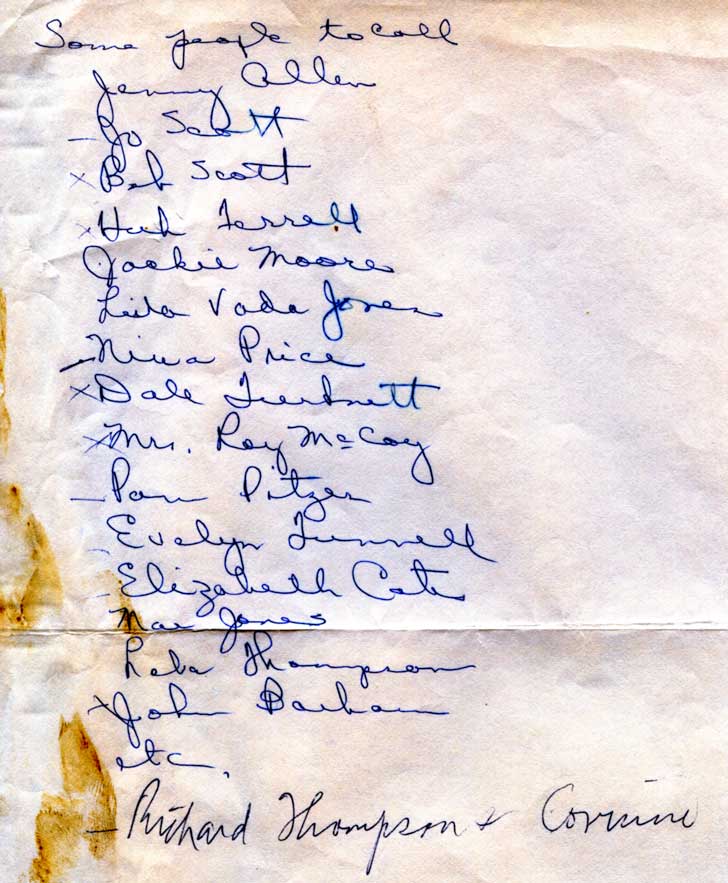 Some people to call
Jenny Allen
- Jo Scott
x Bob Scott
x Hub Terrell
Jackie Moore
Lela Vada Jones
- Nina Price
x Dale
x Mrs. Roy McCoy
- Pam Pitzer
- Evelyn Tunnell
- Elizabeth Cate
Mae Jones
Thompson
x John Barham
etc.
- Richard Thompson & Corinne